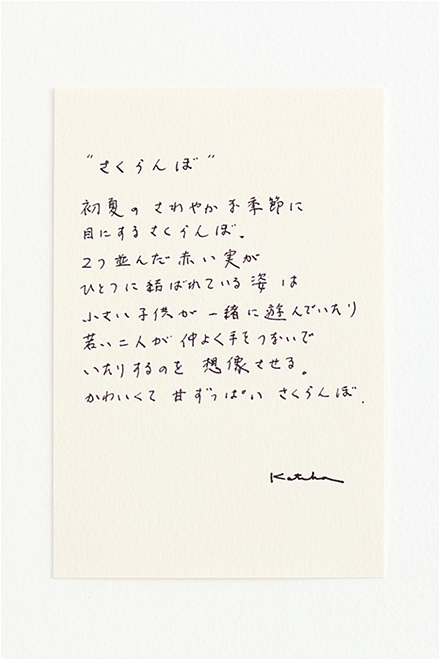 "さくらんぼ"
初夏の さわやかな季節に
目にするさくらんぼ。
2つ並んだ赤い実が
ひとつに結ばれている姿は
小さい子供が一緒に遊んでいたり
若い二人が仲よく手をつないで
いたりするのを想像させる。
かわいくて甘ずっぱいさくらんぼ.